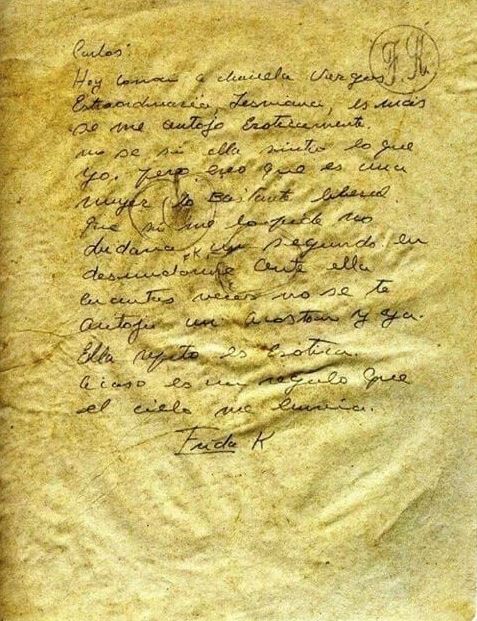 F. K.
Carlos:
Hoy conocí a chavela Vargas
Extraordinaria, Lesviana, es más
se me antojo Eroticamente
no se si ella sintio lo que
yo. pero creo que es una
mujer lo Bastante liberal
que si me lo pide no
dudaria un segundo en
desnudarme ante ella
Cuantas veces no se te
antoja un acoston y ya.
Ella repito es Erotica.
acaso es un regalo que
el cielo me envia.
Frida K